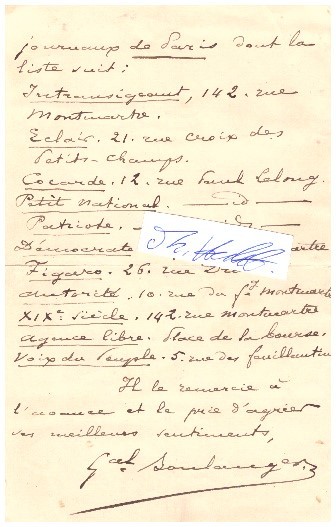 journaux de Paris dont la
liste suit:
Intransigeant, 142. rue
Montmartre.
Eclair. 21. rue croix des
Petits-champs.
Cocarde. 12. rue Paul Lelong.
Petit National. — id —
Patriote. — id —
Démocrate
Figaro. 26. rue
Autorité. 10. rue du fg Montmartre
XIXe siècle. 142. rue montmartre
agence libre. Place de la bourse.
Voix du Peuple. 5. rue des feuillantines
Il le remercie à
l'avance et le prie d'agréer
ses meilleurs sentiments,
Gal Boulanger